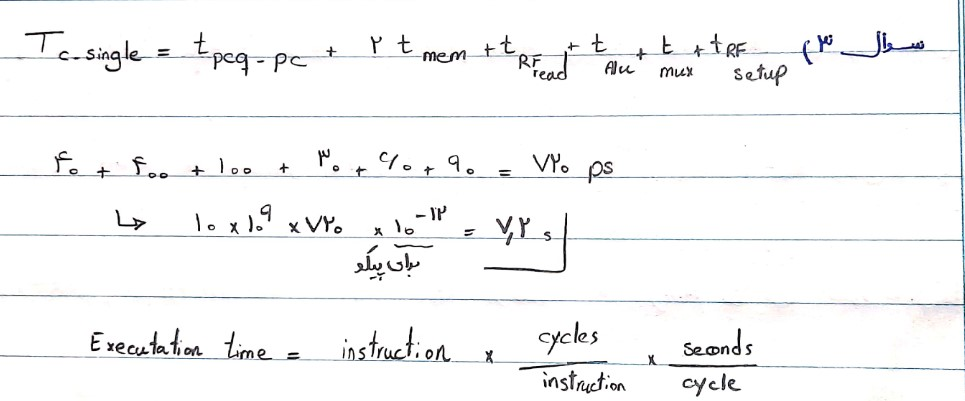 سوال ۳) T c-single = t pcq-pc + ۲ t mem + t RF read + t Alu + t mux + t RF setup
۴۰ + ۴۰۰ + ۱۰۰ + ۳۰ + ۶۰ + ۹۰ = ۷۲۰ ps
↳ ۱۰ × ۱۰^۹ × ۷۲۰ × ۱۰^-۱۲ = ۷,۲ s
برای پیکو
Executation time = instruction × cycles/instruction × seconds/cycle